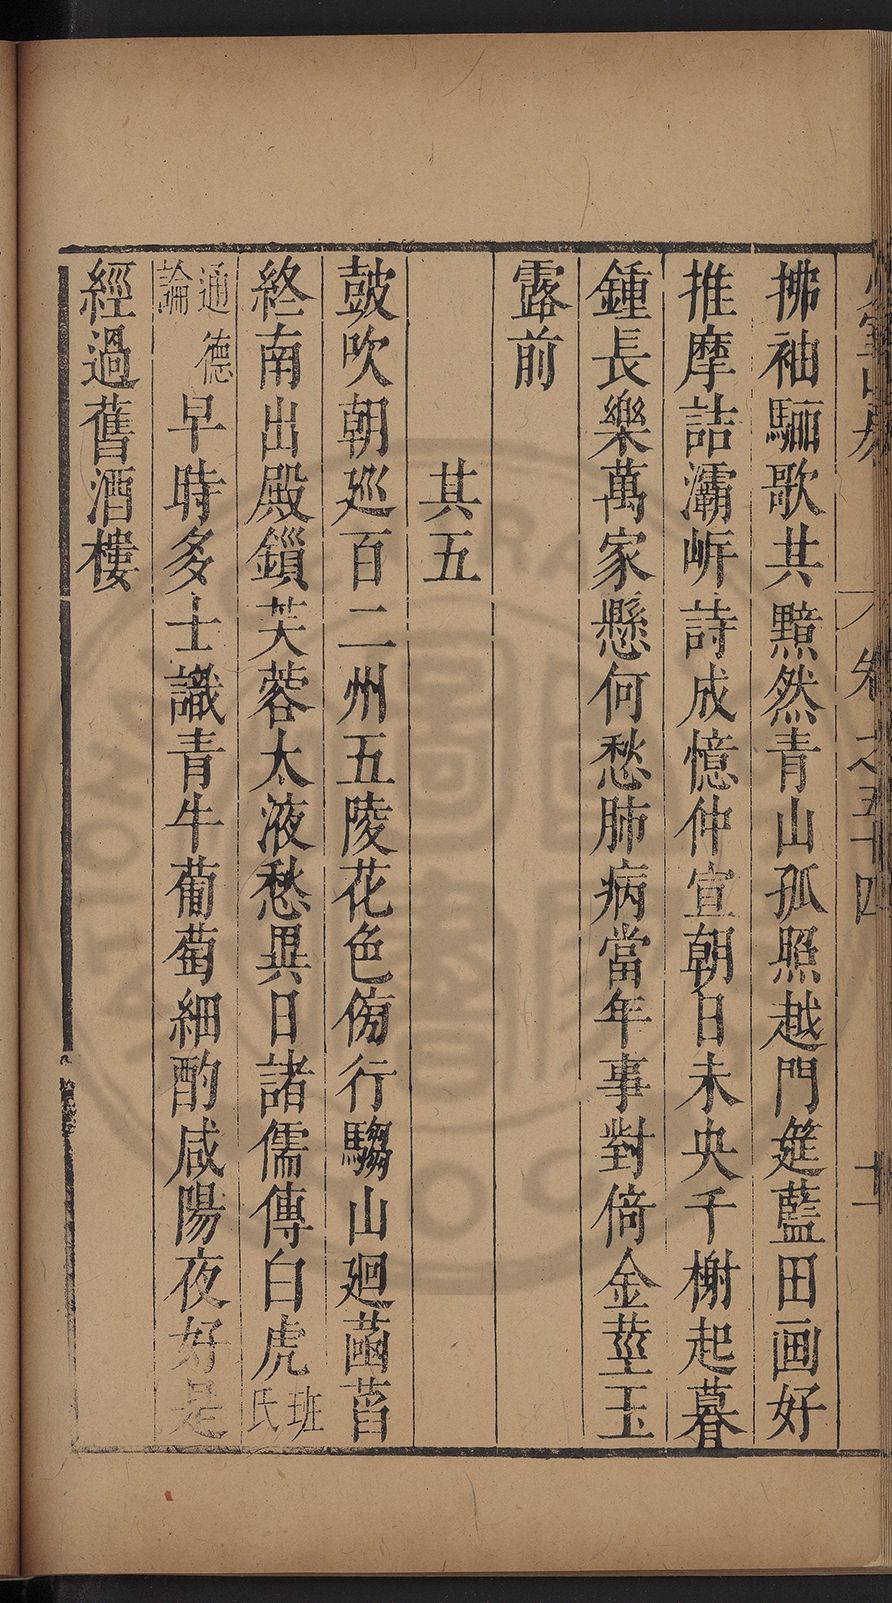 卷之五十四
十一
拂袖驪歌共黯然青山孤照越門筵藍田画好
推摩詰灞岍詩成憶仲宣朝日未央千榭起暮
鍾長樂萬家懸何愁肺病當年事對倚金莖玉
露前
其五
鼓吹朝廵百二州五陵花色傍行騶山廻菡萏
終南出殿鎻芙蓉太液愁異日諸儒傳白虎班氏
通德論早時多士識青牛葡萄細酌咸陽夜好是
經過舊酒樓